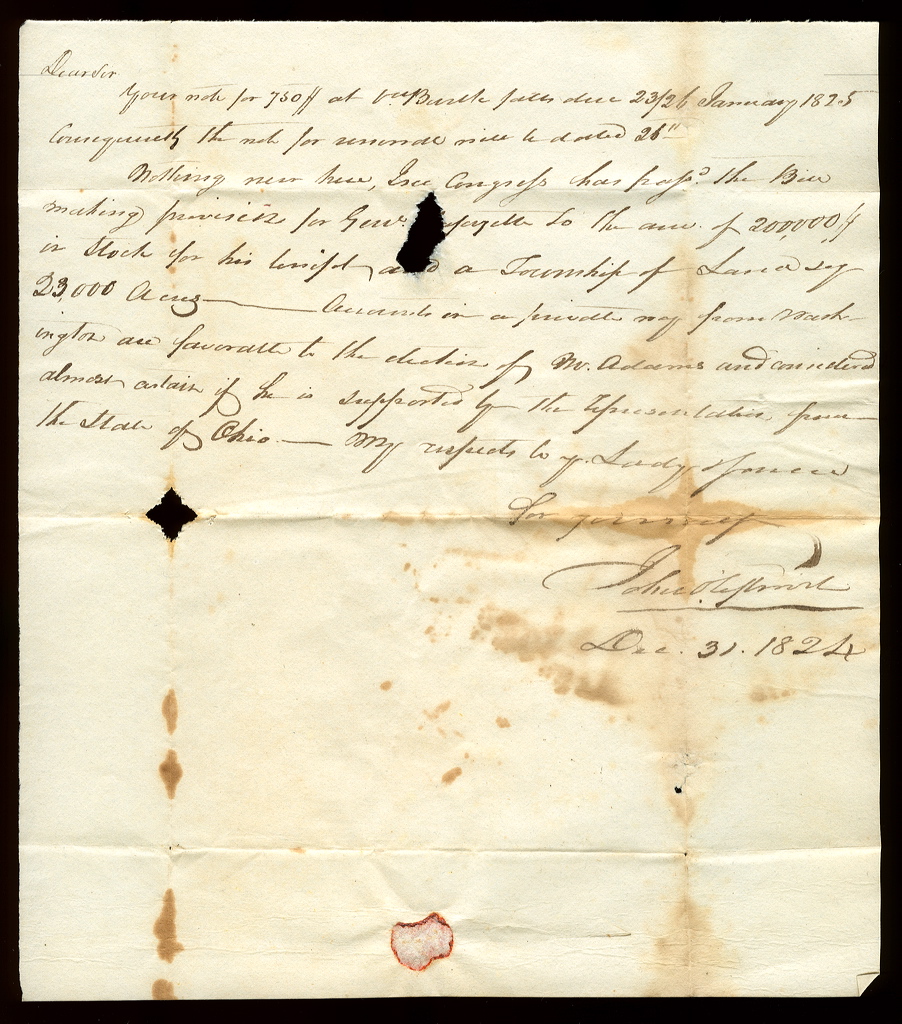 Dear Sir
Your note for 750 $ at Va. Bank falls due 23/26 January 1825
Consequently the note for renewal will be dated 26"
Nothing new here, I see Congress has passd. the Bill
making provision for Genl. ayette to the am. of 200,000 $
in Stock for his benefit, and a Township of Land say
23,000 Acres — Accounts in a private way from Wash-
ington are favorable to the election of Mr. Adams and considered
almost certain if he is supported by the representation from
the State of Ohio. — My respects to yr. Lady &
for yourself
John
Dec. 31. 1824